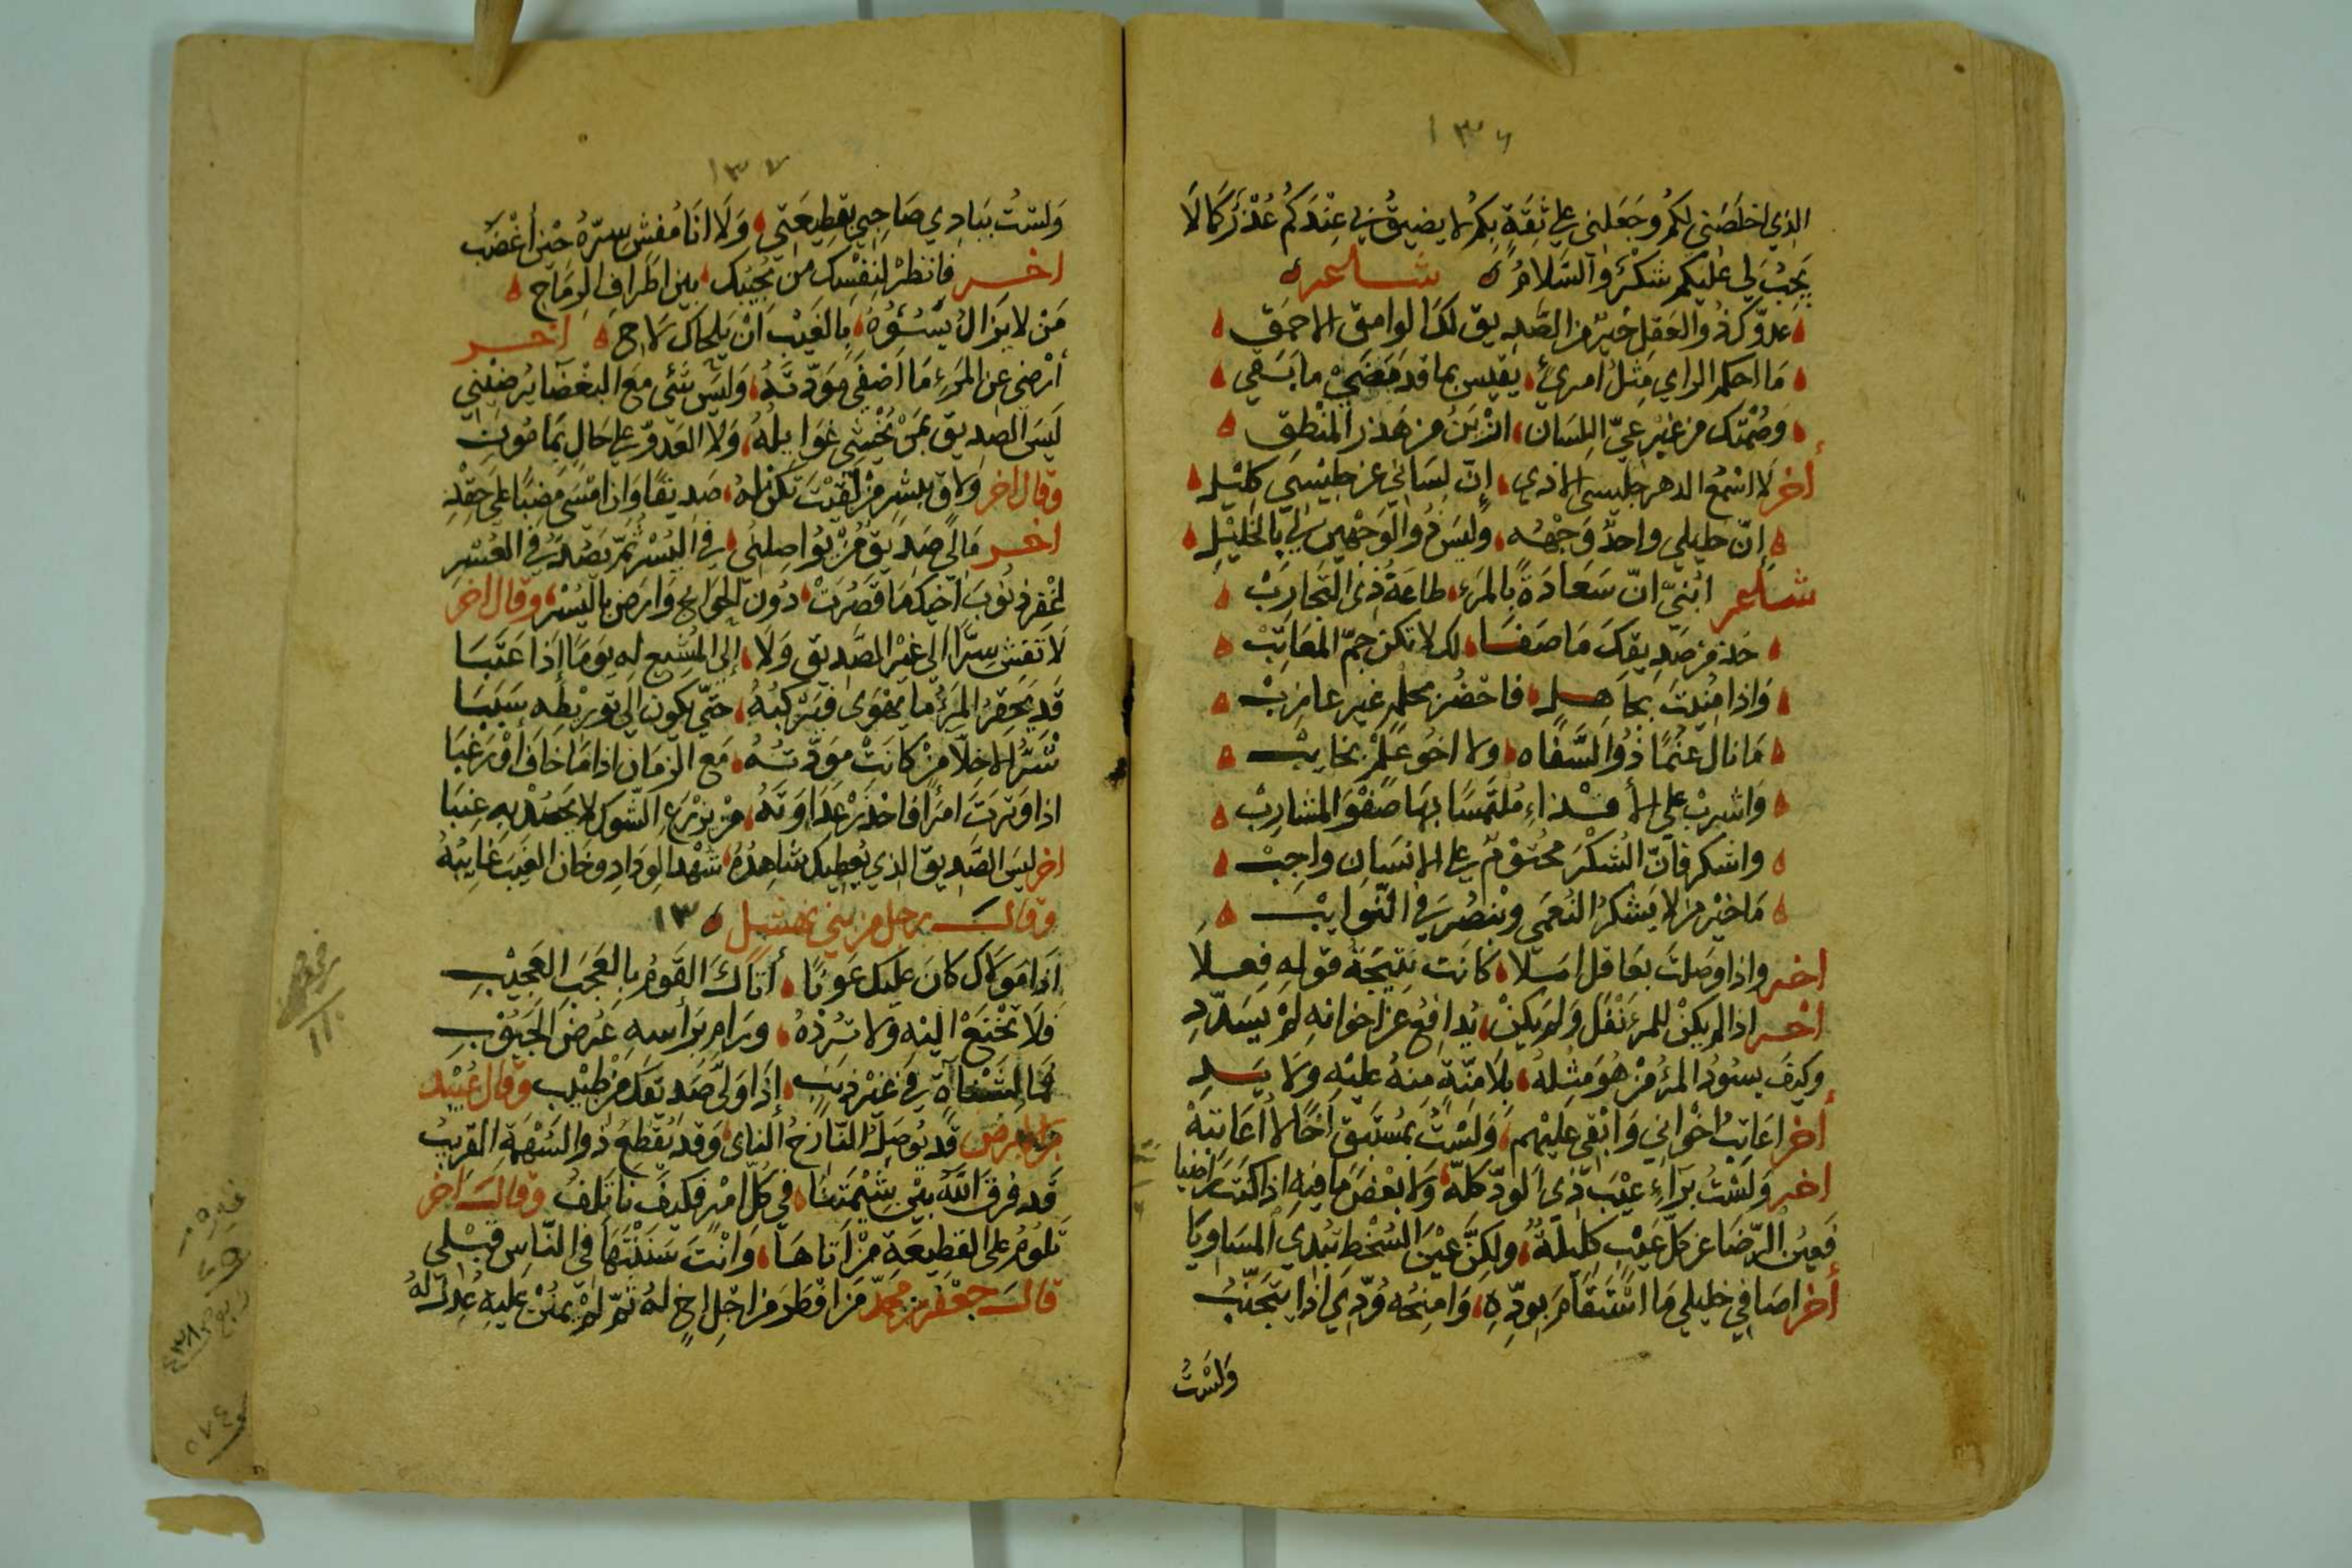 ١٣٦
الذي اخلصَني لكم وجَعَلني على ثِقَةٍ بِكم لا يضيقُ لي عِنْدَكُم عُذْرٌ كما لَا
يَجِبُ لي عليكم شكْرٌ والسَّلامُ ه شاعر ه
عدوّك ذو العَقل خيرٌ من الصَّديق لك الوامق الاحمق
مَا احكم الراي مِثلُ امرئٍ يقيس بما قد مَضَى ما بَقي
وصُمْتك من غَيْر عَيّ اللِسَان ازْيَنُ من هَذر المنْطق
أخر لا اسْمَعُ الدهر جَليسى الاذي إنّ لسَاني عن جليْسي كليْلِ
إنّ خليلي واحدٌ وَجْهُه وليسَ ذُو الوَجْهين لي بالخَليْلِ
شاعر ابُنيّ انّ سَعَادَةً بالمرْءِ طاعَةُ ذي التَجارِبْ
خذ من صَديقكَ مَا صَفَا لك لا تكن جمّ المعَاتِبْ
وَاذا مُنِيْتَ بجَاهِلٍ فاحْضُر بحلمٍ غير عازِبْ
مَا نالَ غُنْمًا ذُو السَّفَاه ولا اخُو عَلمٍ بخايبْ
وَاشربْ على الأقْذاءِ مُلتَمسًا بهَا صَفْوَ المشارِبْ
واشكر فانّ الشُكْرَ محتُوْمٌ على الانسَان واجِبْ
مَا خيْر من لا يَشكرُ النُعمَى وينصُرَ في النَّوايبْ
اخر واذا وصَلتَ بعَاقل امَلًا كانَت نتِيْجَةُ قولِهِ فِعلَا
اخر اذا لم يكنْ للمرءِ فَضْل وَلم يكنْ يُدافعُ عن اخوانهِ لمْ يسَدّدِ
وكيفَ يسُودُ المرْءُ مَنْ هُوَ مِثْلهُ بلَا مِنّةٍ منهُ عليْهِ ولَا يَدِ
أخر اعَاتِبُ اخْواني وَابْقى عليْهِم وَلسْتُ بمُسْتَبقٍ اخًا لا أعَاتبُهْ
اخر وَلسْتُ بَراءٍ عيْبَ ذي الودّ كلّهُ ولا بعْضَ مَا فيهِ اذا كنتُ رَاضيا
فَعينُ الرّضَا عن كلّ عَيْبٍ كليلةٌ ولكنَّ عيْنَ السُخْطِ تُبْدي المسَاويَا
أخر اصَافي خليلي مَا اسْتَقَامَ بودّهِ وَامنحُه وُدّي اذا يَتَجَنّبُ
وَلسْتُ
١٣٧
وَلستُ ببَادي صَاحِبي بقطيعَتي وَلَا انَا مُفشٍ سِرّهُ حيْن أغْضَب
اخر فانظرْ لنفْسِك من يُجيبك بين اطراف الرمَاح
مَنْ لا يزالُ يسُوْؤُهُ بالغَيْبِ انْ يلحاك لاح اخر
أرْضى عن المرءِ مَا اصْفَى مَوَدّتَهُ وَليسَ شئ مَع البَغْضَا يُرضيْني
لَيسَ الصديق بمَنْ تُخْشى غوَايلُهُ وَلا العدوّ على حَالٍ بمَامُونِ
وقال اخر ولاقِ ببشرٍ منْ لقيْتَ تكن لهُ صديقًا وَاذا امْسَى مضبًا على حِقْدِ
اخر مَا لي صَديقٌ مَنْ يُواصِلني في اليُسْر ثمّ يَصُدّ في العُسْر
اغْفر ذنُوبَ أخيك مَا قَصُرَتْ دُونَ الجوَائج وَارضَ باليُسْر وقال اخر
لَا تَفشِ سِرًّا الى غيْر الصَّديق وَلَا إلى المشيع له يَومًا إذا عَتبَا
قد يَحقرُ المرْءُ ما يهْوَى فيَرْكبُهُ حَتّى يكون الى توريْطه سَبَبَا
شَرُّ الاخلّا مَنْ كانَتْ موَدّتهُ مَع الزمَان اذا مَا خَافَ أوْ رَغِبَا
اذا وَترَتَ امرَأً فاحْذَرْ عَدَاوَتَهُ مَنْ يزْرَع الشّوك لا يحصُدْ بهِ عِنبَا
اخر ليسَ الصَّديق الذي يُعطيك شاهِدُهُ شهْدَ الودَادِ وخان الغيبَ غايبُهُ
وقالَ رجل من بني نهشل ١٣
اذَا مَوْلاكَ كانَ عليك عَونًا أتاكَ القَومُ بالعَجَبِ العَجيْبِ
فلا تخْنَعْ اليْهِ ولا تُرِدْهُ ورَامِ برأسهِ عُرْضَ الجَبُوْبِ
فما لِشَنْاةٍ في غَيْر ذَنْبٍ إذَا وَلّى صَديقكَ من طبِيْبِ وقال عُبيْد
بن الابرَصْ قَد يُوصَلُ النّازحُ النائ وَقد يُقطعُ ذو السُهْمَة القريبُ
قَد فرَقَ اللّهُ بيْن شيْمَتنَا في كُلّ امْرٍ فكيفَ نَاتلفُ وقالَ اخر
تلُومُ على القطيعَةِ مَنْ أتاهَا وَانْتَ سَنَنْتهَا في النّاسِ قبْلي
قالَ جَعْفر بن محمّد مَن افْطَرَ من اجْل اخٍ لهُ ثمّ لمْ يمنُنْ عليهِ عُدِلَ لهُ